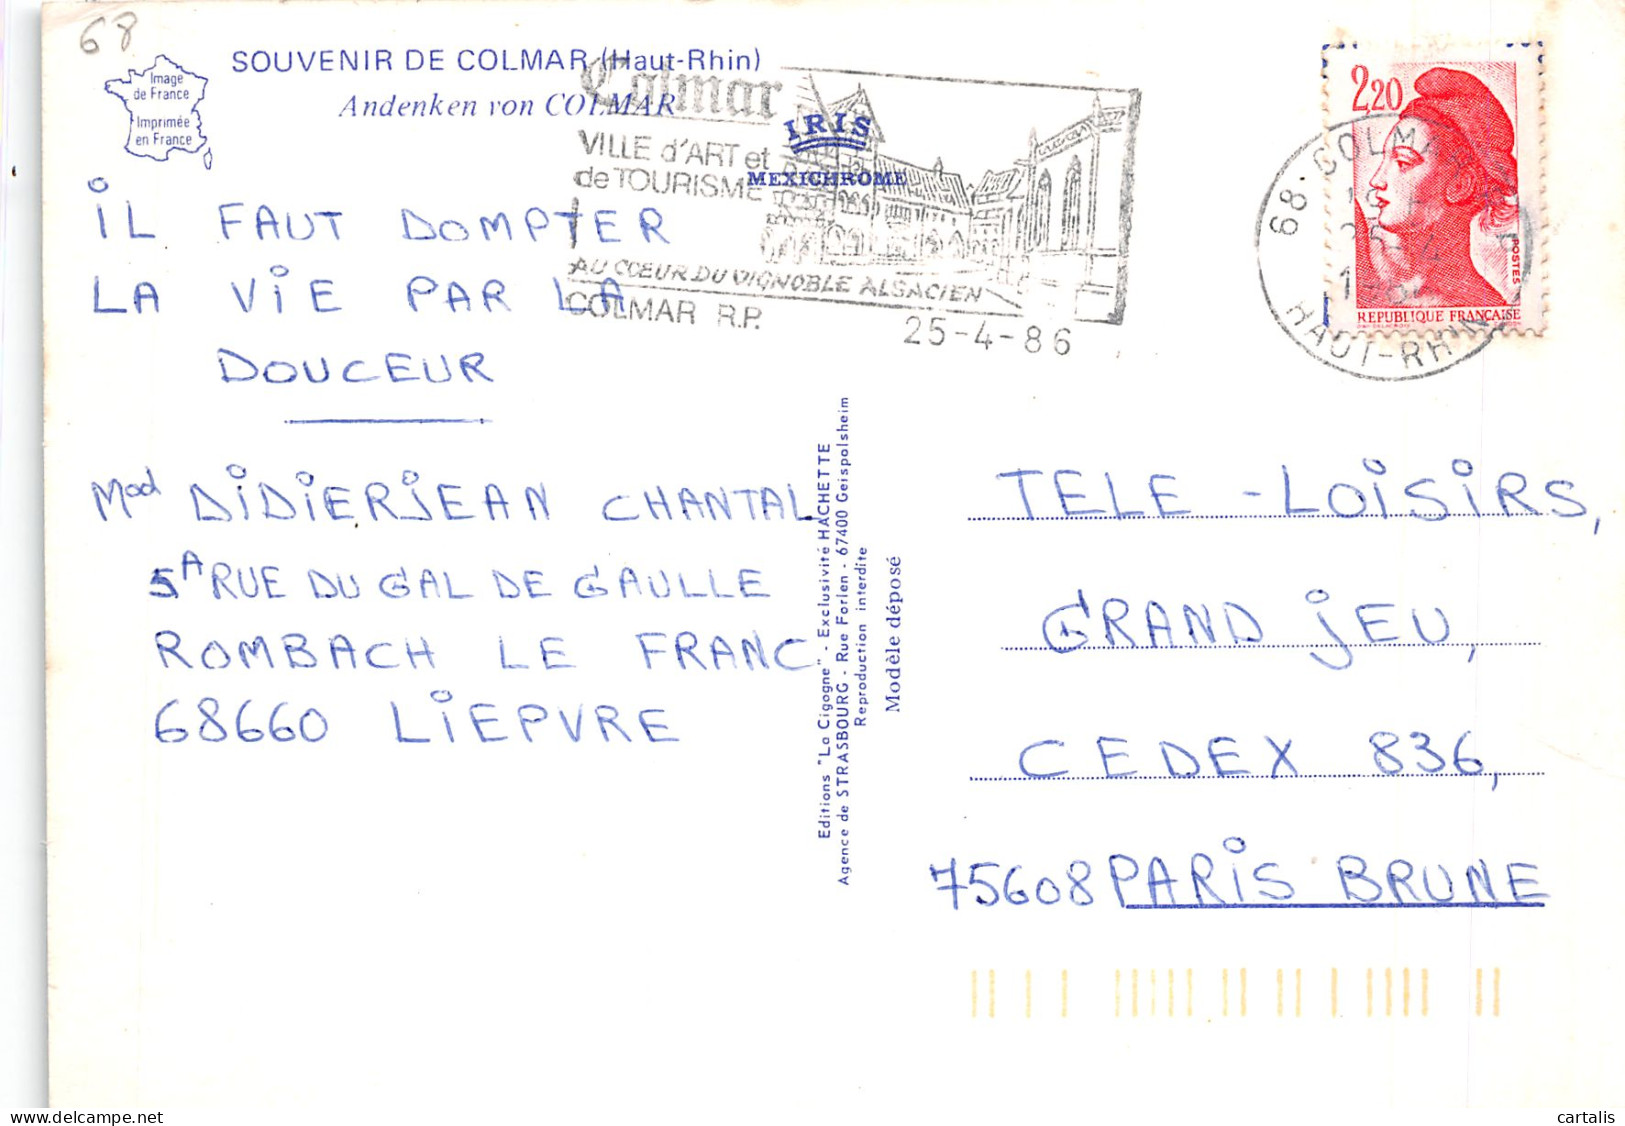 68
SOUVENIR DE COLMAR (Haut-Rhin)
Andenken von COLMAR
Image
de France
Imprimée
en France
Colmar
VILLE d'ART et
de TOURISME
AU CŒUR DU VIGNOBLE ALSACIEN
COLMAR R.P.
25-4-86
IRIS
MEXICHROME
2,20
POSTES
REPUBLIQUE FRANÇAISE
68-COLMAR
HAUT-RHIN
IL FAUT DOMPTER
LA VIE PAR LA
DOUCEUR
Mad DIDIERJEAN CHANTAL
5A RUE DU GAL DE GAULLE
ROMBACH LE FRANC
68660 LIEPVRE
Editions "La Cigogne" - Exclusivité HACHETTE
Agence de STRASBOURG - Rue Forlen - 67400 Geispolsheim
Reproduction interdite
Modèle déposé
TELE-LOISIRS,
GRAND JEU,
CEDEX 836,
75608 PARIS BRUNE
cartalis